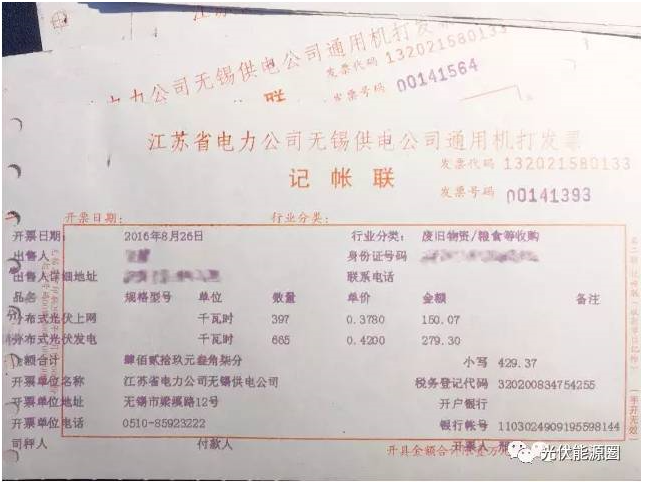 江苏省电力公司无锡供电公司通用机打发票
发票代码 132021580133
发票号码 00141564
联
江苏省电力公司无锡供电公司通用机打发票
发票代码 132021580133
记帐联
发票号码 00141393
开票日期: 行业分类:
开票日期: 2016年8月26日 行业分类: 废旧物资/粮食等收购
出售人 身份证号码
出售人详细地址 联系电话
品名 规格型号 单位 数量 单价 金额 备注
分布式光伏上网 千瓦时 397 0.3780 150.07
分布式光伏发电 千瓦时 665 0.4200 279.30
金额合计 肆佰贰拾玖元叁角柒分 小写 429.37
开票单位名称 江苏省电力公司无锡供电公司 税务登记代码 320200834754255
开票单位地址 无锡市梁溪路12号 开户银行
开票单位电话 0510-85923222 银行帐号 1103024909195598144
司秤人 付款人 开票人
开具金额合计
手开无效
光伏能源圈